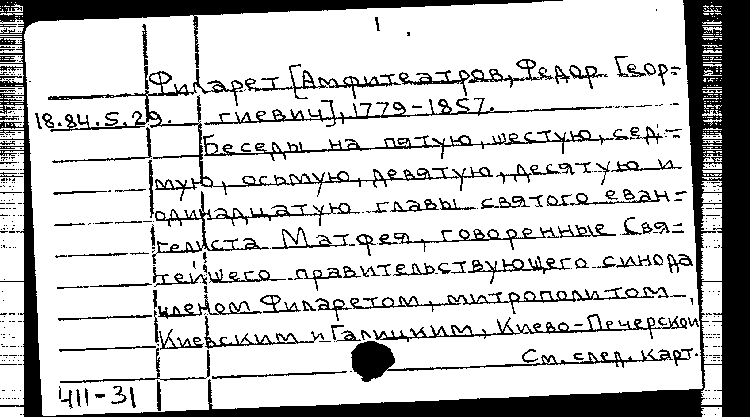 1
Филарет [Амфитеатров, Федор Геор=
18.84.5.29. гиевич], 1779-1857.
Беседы на пятую, шестую, седь=
мую, осьмую, девятую, десятую и
одинадцатую главы святого еван=
гелиста Матфея, говоренные Свя=
тейшего правительствующего синода
членом Филаретом, митрополитом
Киевским и Галицким, Киево-Печерской
См. след. карт.
411-31